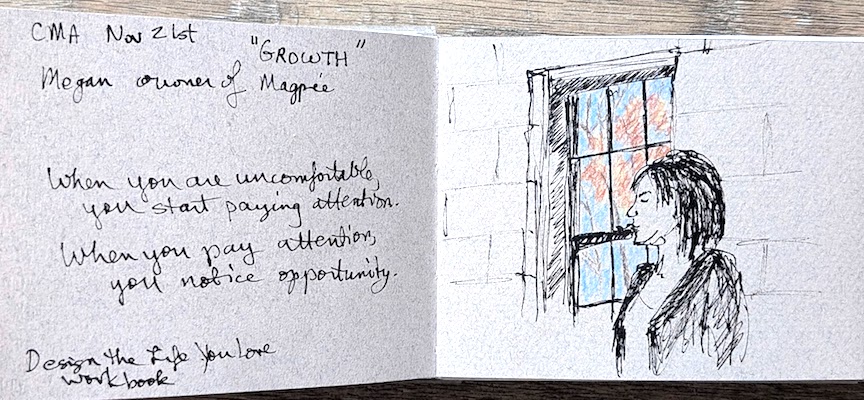 CMA Nov 21st
"GROWTH"
Megan owner of Magpie
When you are uncomfortable,
you start paying attention.
When you pay attention,
you notice opportunity.
Design the Life You Love
workbook